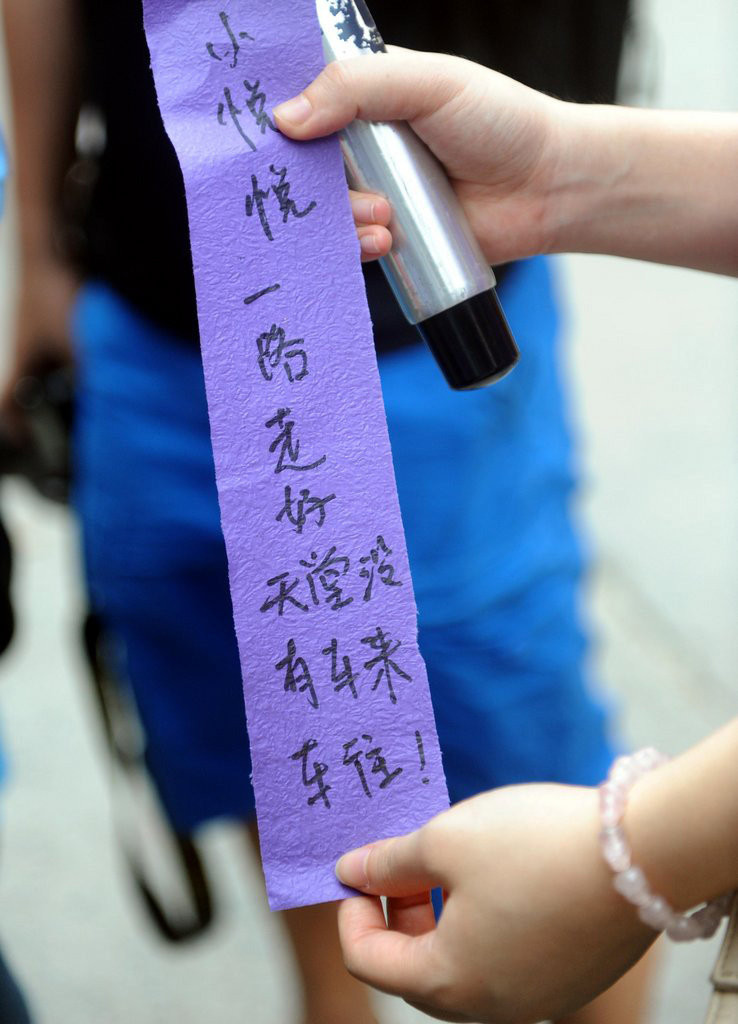 小悦悦一路走好
天堂没
有车来
车往！